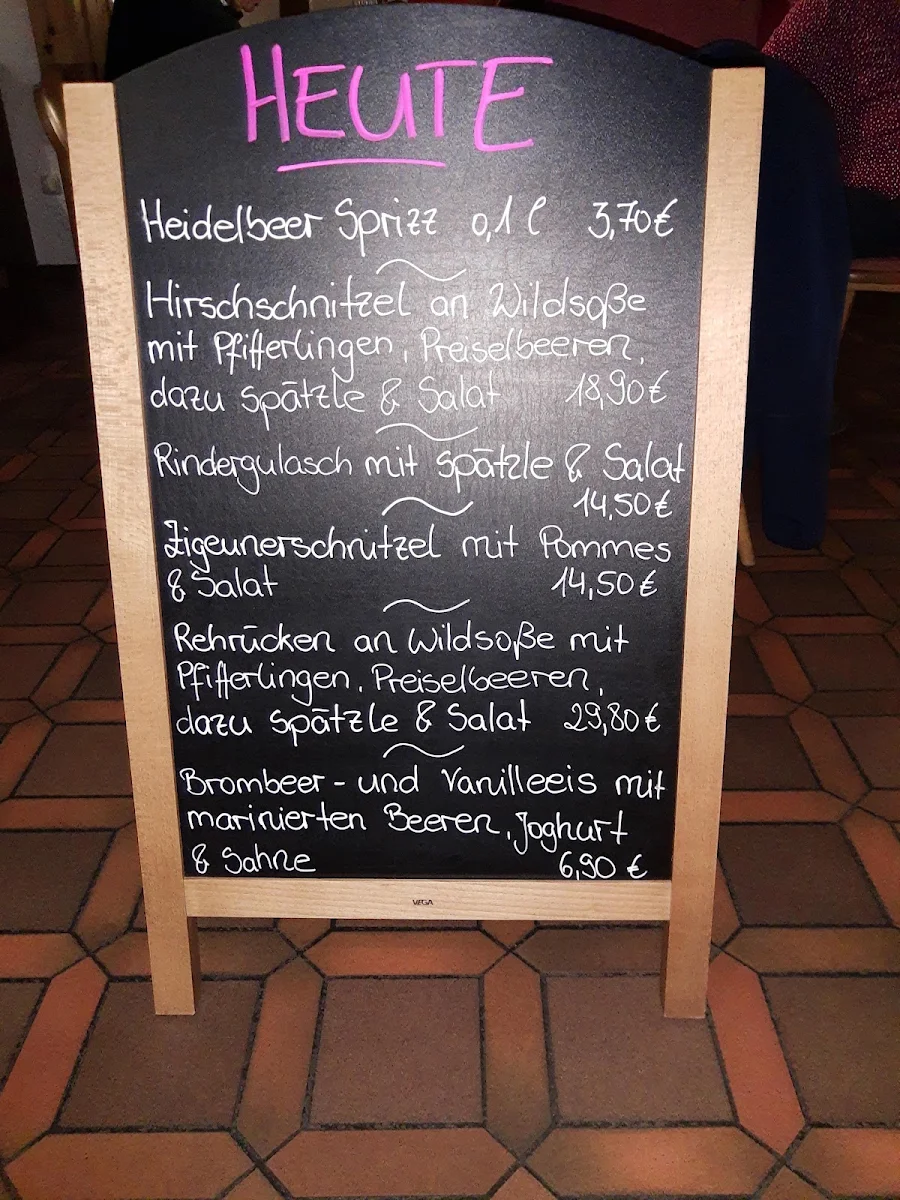 HEUTE
Heidelbeer Sprizz 0,1 l 3,70€
Hirschschnitzel an Wildsoße
mit Pfifferlingen, Preiselbeeren,
dazu Spätzle & Salat 18,90€
Rindergulasch mit Spätzle & Salat
14,50€
Zigeunerschnitzel mit Pommes
& Salat 14,50€
Rehrücken an Wildsoße mit
Pfifferlingen, Preiselbeeren,
dazu Spätzle & Salat 29,80€
Brombeer- und Vanilleeis mit
marinierten Beeren, Joghurt
& Sahne 6,90 €
VEGA